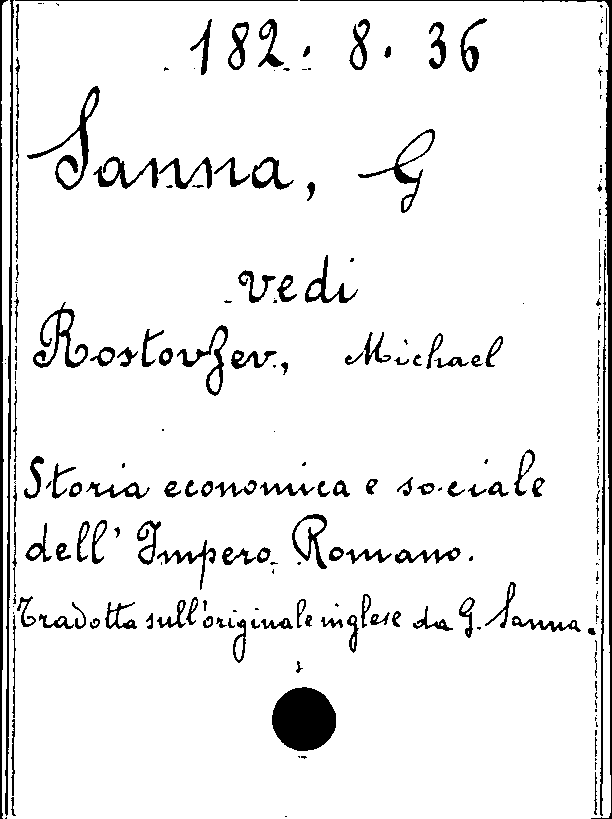 182. 8. 36
Sanna, G
vedi
Rostovzev, Michael
Storia economica e sociale
dell' Impero Romano.
Tradotta sull'originale inglese da G. Sanna.